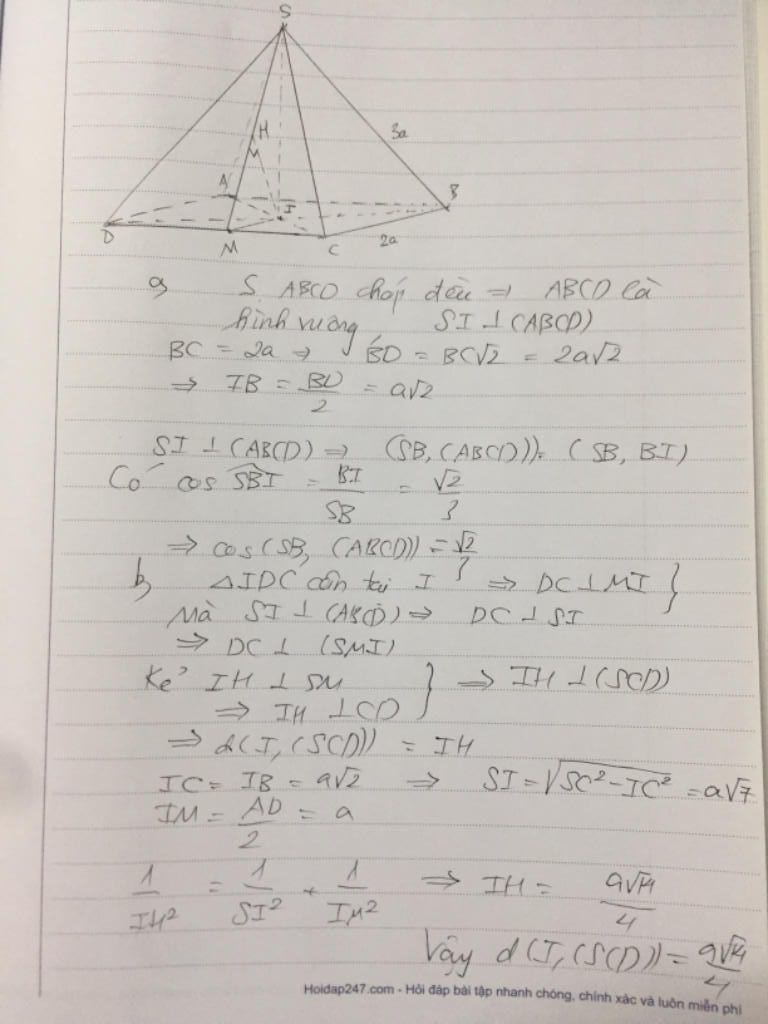 S
3a
H
A
B
I
D
M
C
2a
a, S.ABCD chóp đều ⇒ ABCD là
hình vuông SI ⊥ (ABCD)
BC = 2a ⇒ BD = BC√2 = 2a√2
⇒ IB = BD/2 = a√2
SI ⊥ (ABCD) ⇒ (SB, (ABCD)) = (SB, BI)
Có cos SBI = BI/SB = √2/3
⇒ cos(SB, (ABCD)) = √2/3
b, ΔIDC cân tại I ⇒ DC ⊥ MI }
Mà SI ⊥ (ABCD) ⇒ DC ⊥ SI
⇒ DC ⊥ (SMI)
Kẻ IH ⊥ SM } ⇒ IH ⊥ (SCD)
⇒ IH ⊥ CD
⇒ d(I, (SCD)) = IH
IC = IB = a√2 ⇒ SI = √(SC² - IC²) = a√7
IM = AD/2 = a
1/IH² = 1/SI² + 1/IM² ⇒ IH = a√14/4
Vậy d(I, (SCD)) = a√14/4
Hoidap247.com - Hỏi đáp bài tập nhanh chóng, chính xác và luôn miễn phí